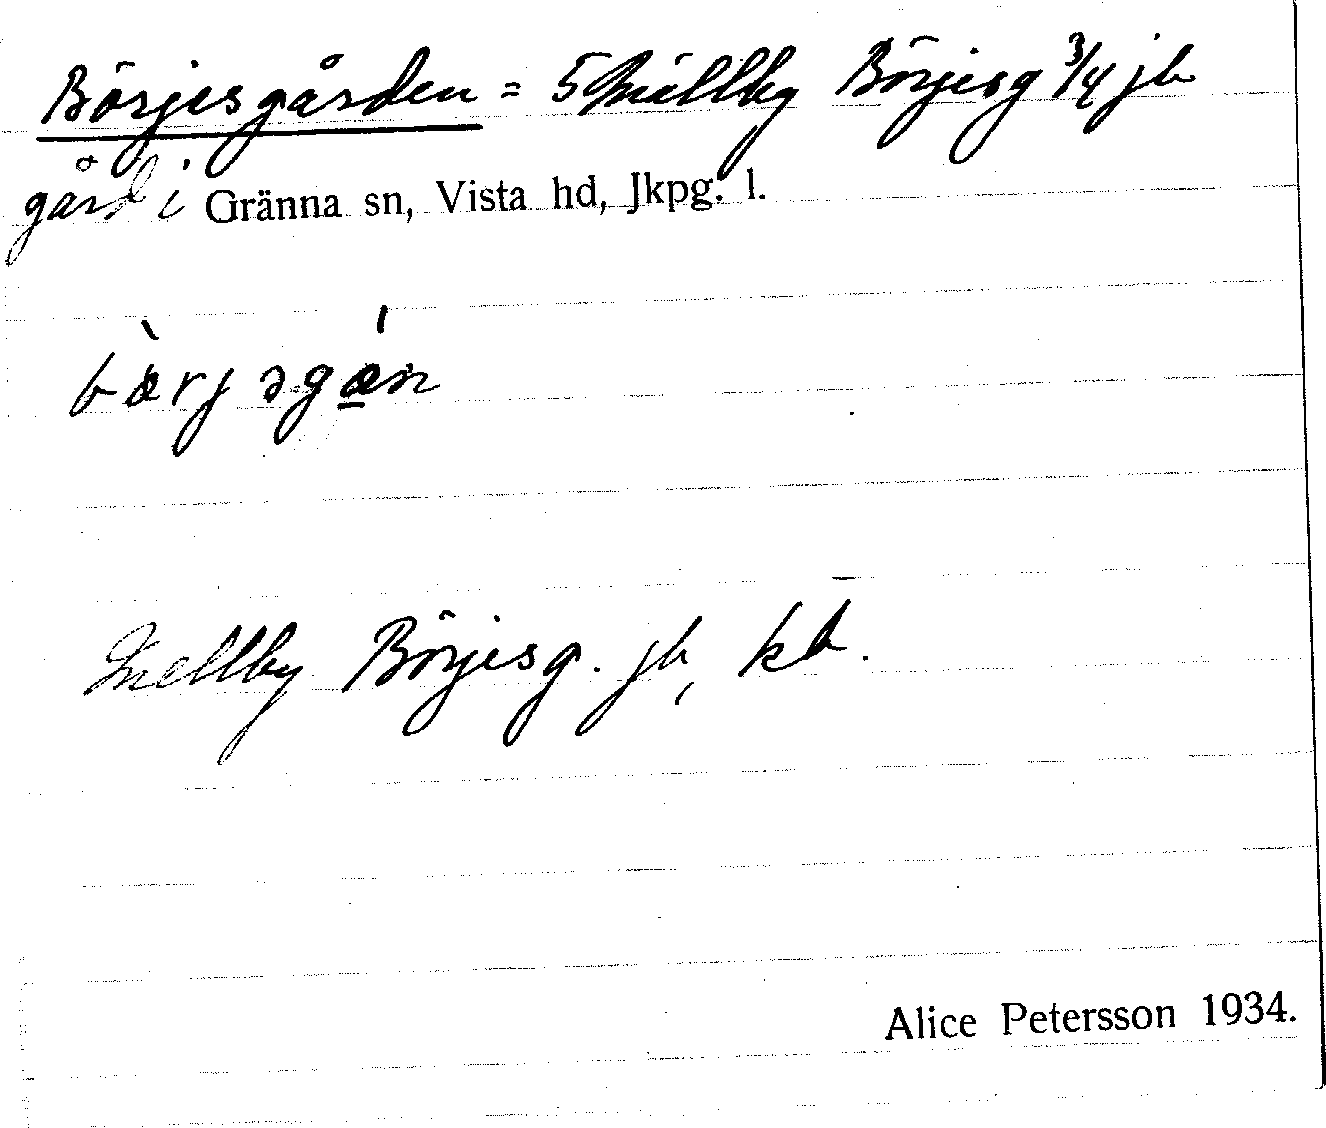 Börjesgården = 5 Mellby Börjesg 3/4 jb
gård i Gränna sn, Vista hd, Jkpg. l.
bæ̀rjəgǽn
Mellby Börjesg. jb, kb.
Alice Petersson 1934.